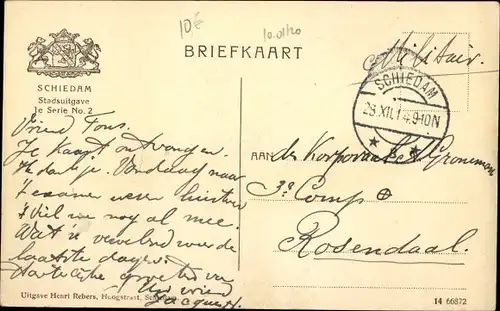 10€
10.01/20
BRIEFKAART
Militair.
SCHIEDAM
Stadsuitgave
1e Serie No. 2
SCHIEDAM
28.XII.14.9-10N
Vriend Fons.
Je kaart ontvangen.
Ik dank je. Vandaag naar
examen weer
Viel me nog al mee.
Wat is vervelend voor de
laatste dagen.
Hartelijke groeten van
Uw vriend
Jacques H.
AAN
den Korporaal
3e Comp
Rosendaal.
Uitgave Henri Rebers, Hoogstraat, Schiedam.
14 66872